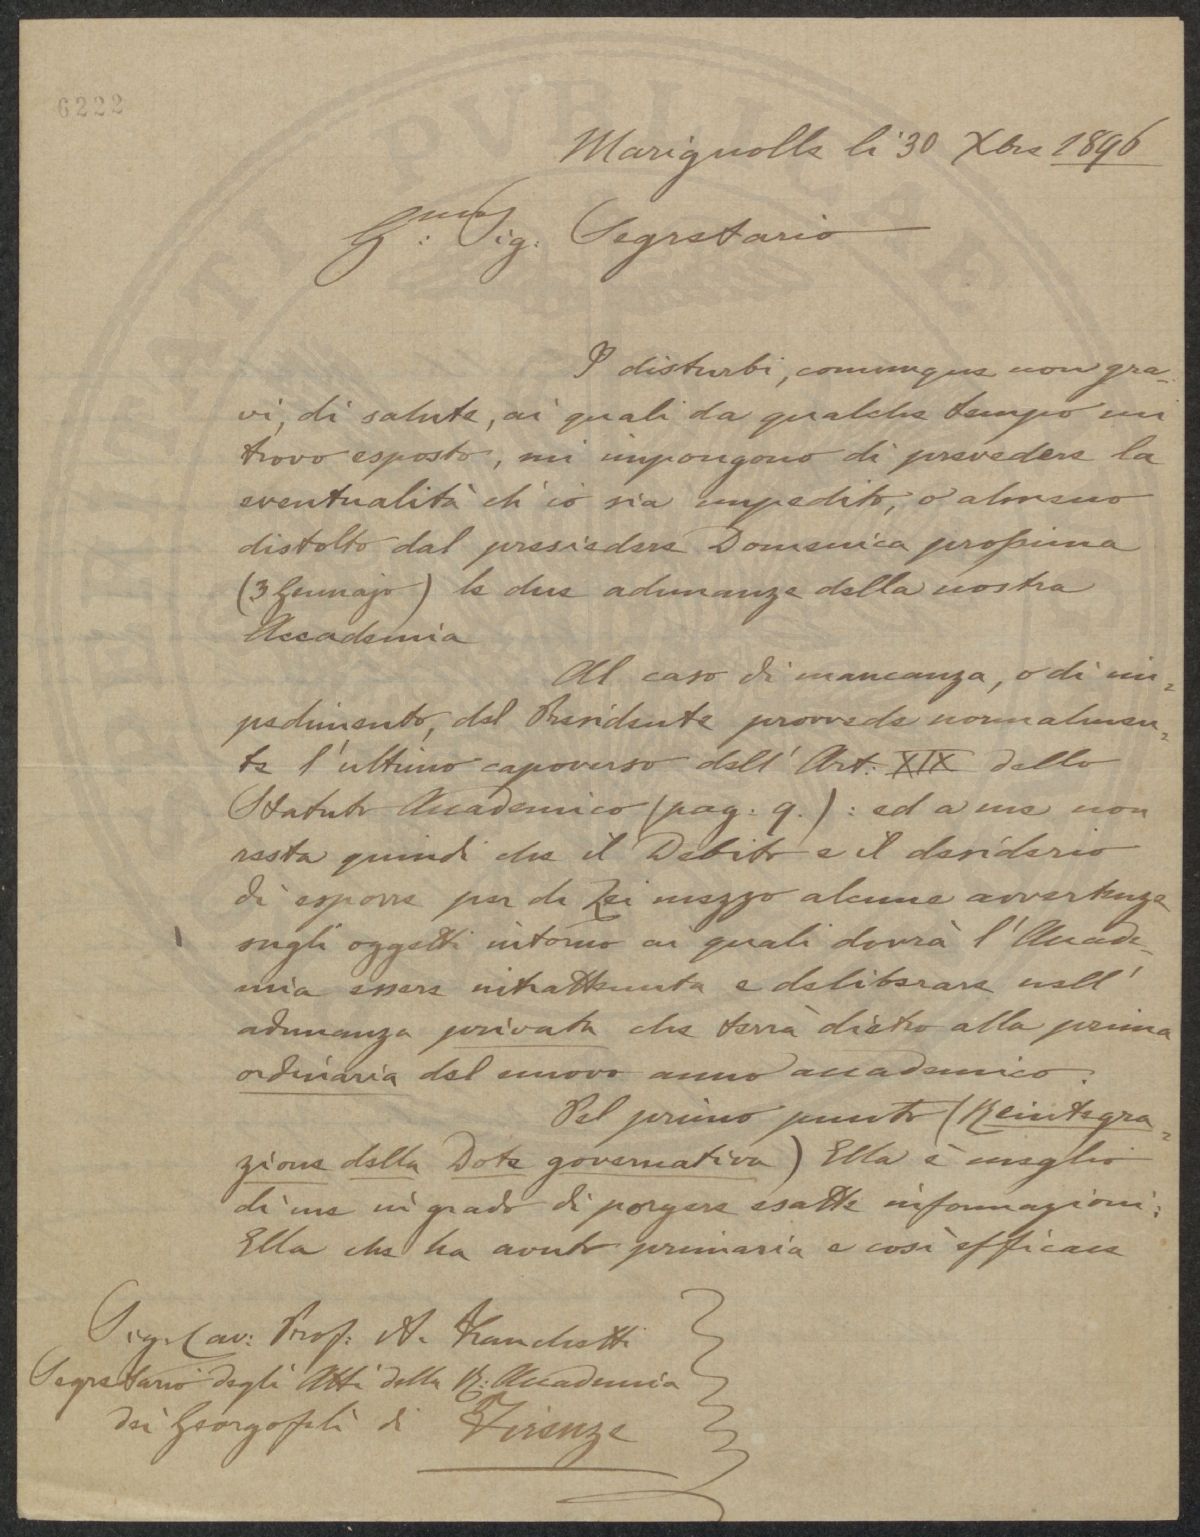 6222
PUBLICAE
UTILITATI
Marignolle lì 30 Xbre 1896
G.mo Sig. Segretario
I disturbi, comunque non gra-
vi, di salute, ai quali da qualche tempo mi
trovo esposto, mi impongono di prevedere la
eventualità ch'io sia impedito, o almeno
distolto dal presiedere Domenica prossima
(3 Gennajo) le due adunanze della nostra
Accademia
Al caso di mancanza, o di im=
pedimento, del Presidente provvede normalmen=
te l'ultimo capoverso dell'Art: XIX dello
Statuto Accademico (pag. 9.): ed a me non
resta quindi che il Debito e il desiderio
di esporre per di Lei mezzo alcune avvertenze
sugli oggetti intorno ai quali dovrà l'Accade-
mia essere intrattenuta e deliberare nell'
adunanza privata che terrà dietro alla prima
ordinaria del nuovo anno accademico.
Pel primo punto (Reintegra=
zione della Dote governativa) Ella è meglio
di me in grado di porgere esatte informazioni:
Ella che ha avuto primaria e così efficace
Sig. Cav: Prof: A. Franchetti
Segretario degli Atti della R: Accademia
dei Georgofili di Firenze